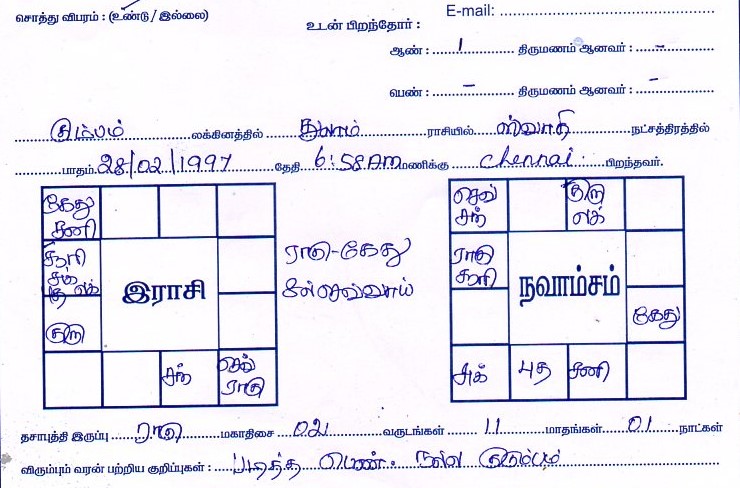 சொத்து விபரம் : (உண்டு / இல்லை)
உடன் பிறந்தோர் :
E-mail:
ஆண் : 1 திருமணம் ஆனவர் : -
பெண் : - திருமணம் ஆனவர் : -
கும்பம் லக்கினத்தில் துலாம் ராசியில் ஸ்வாதி நட்சத்திரத்தில்
பாதம். 28/02/1997 தேதி 6:58 AM மணிக்கு chennai பிறந்தவர்.
கேது
சனி
சூரி
குரு
இராசி
சந்
செவ்
ராகு
ராகு-கேது
செவ்வாய்
செவ்
சந்
குரு
ராகு
சூரி
நவாம்சம்
கேது
சுக்
புத
சனி
தசாபுத்தி இருப்பு ராகு மகாதிசை 02 வருடங்கள் 11 மாதங்கள் 01 நாட்கள்
விரும்பும் வரன் பற்றிய குறிப்புகள் : படித்த பெண். நல்ல குடும்பம்